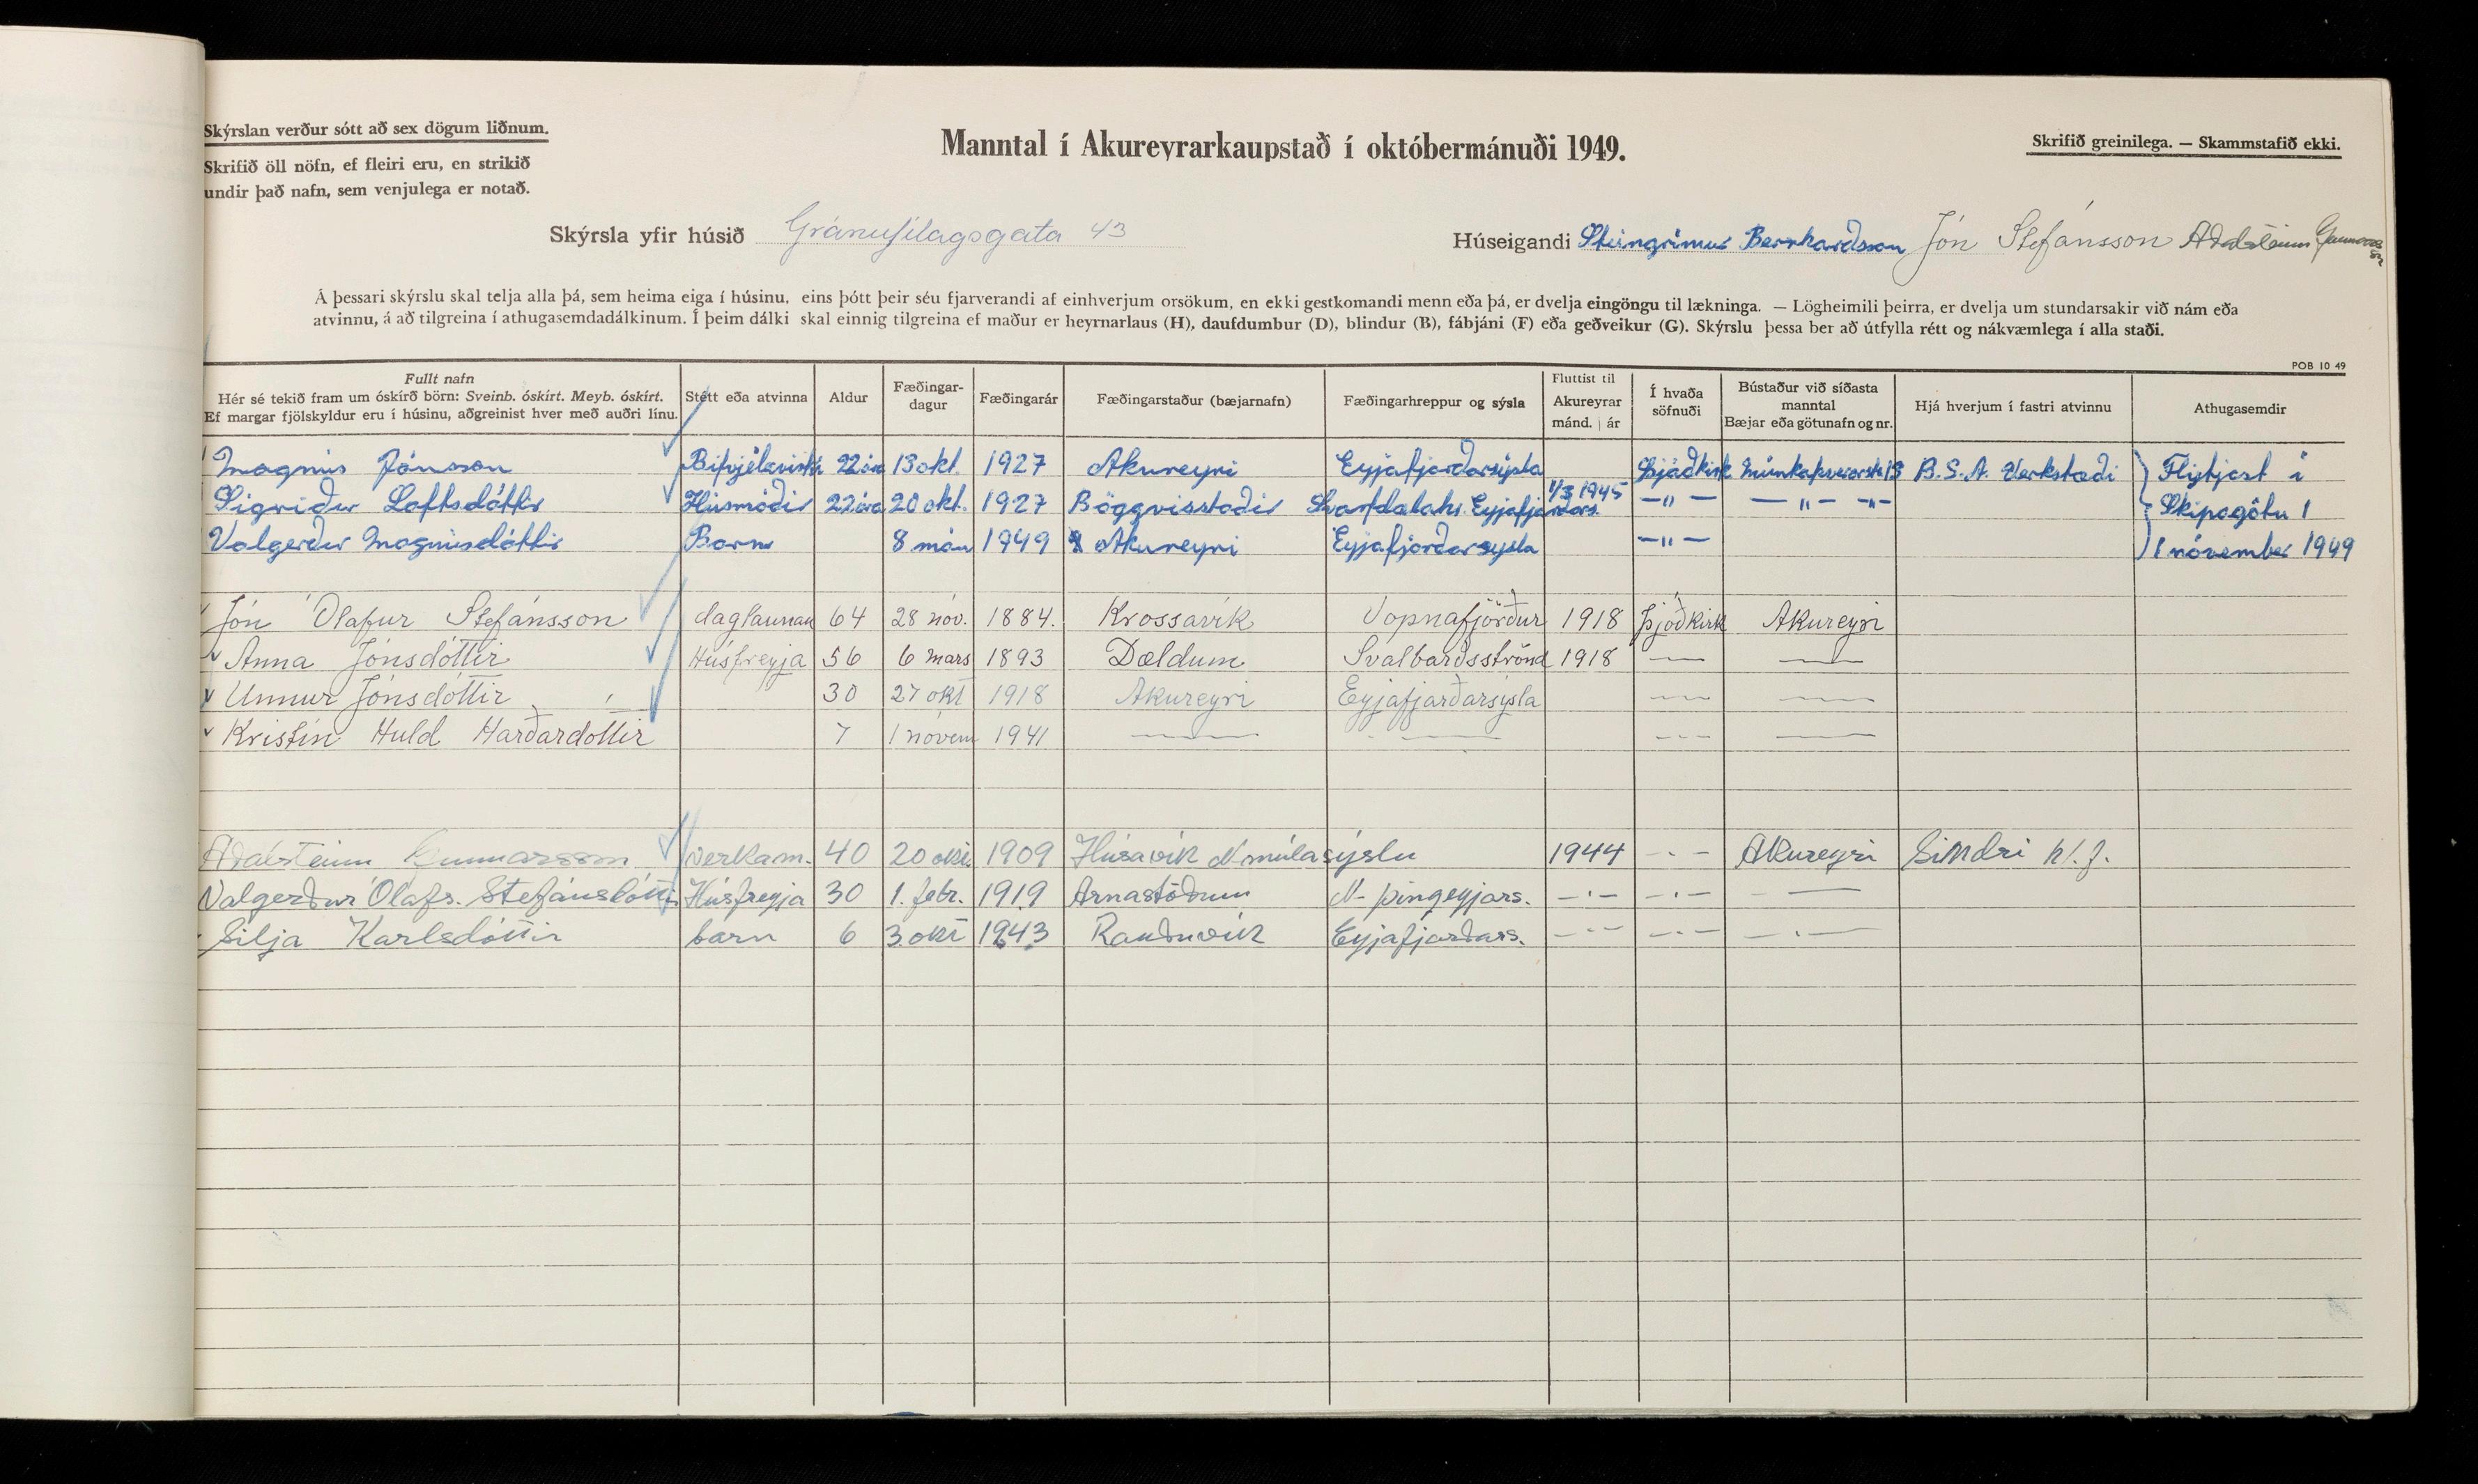 Skýrslan verður sótt að sex dögum liðnum.
Skrifið öll nöfn, ef fleiri eru, en strikið
undir það nafn, sem venjulega er notað.
Manntal í Akureyrarkaupstað í októbermánuði 1949.
Skrifið greinilega. — Skammstafið ekki.
Skýrsla yfir húsið Gránufélagsgata 43
Húseigandi Steingrímur Bernharðsson Jón Stefánsson Aðalsteinn Gunnarsson
Á þessari skýrslu skal telja alla þá, sem heima eiga í húsinu, eins þótt þeir séu fjarverandi af einhverjum orsökum, en ekki gestkomandi menn eða þá, er dvelja eingöngu til lækninga. — Lögheimili þeirra, er dvelja um stundarsakir við nám eða
atvinnu, á að tilgreina í athugasemdadálkinum. Í þeim dálki skal einnig tilgreina ef maður er heyrnarlaus (H), daufdumbur (D), blindur (B), fábjáni (F) eða geðveikur (G). Skýrslu þessa ber að útfylla rétt og nákvæmlega í alla staði.
POB 10 49
Fullt nafn
Hér sé tekið fram um óskírð börn: Sveinb. óskírt. Meyb. óskírt.
Ef margar fjölskyldur eru í húsinu, aðgreinist hver með auðri línu.
Stétt eða atvinna
Aldur
Fæðingar-
dagur
Fæðingarár
Fæðingarstaður (bæjarnafn)
Fæðingarhreppur og sýsla
Fluttist til
Akureyrar
mánd. | ár
Í hvaða
söfnuði
Bústaður við síðasta
manntal
Bæjar eða götunafn og nr.
Hjá hverjum í fastri atvinnu
Athugasemdir
Magnús Jónsson Bifvjélavirki 22 ára 13 okt. 1927 Akureyri Eyjafjarðarsýsla Þjóðkirk B.S.A. Verkstæði Flytjast í
Sigríður Loftsdóttir Húsmóðir 22 ára 20 okt. 1927 Böggvisstaðir Svarfdalahr. Eyjafjarðars. 1/3 1945 —"— —"— —"— Skipagötu 1
Valgerður Magnúsdóttir Barn 8 mán 1949 Akureyri Eyjafjarðarsýsla —"— 1 nóvember 1949
Jón Ólafur Stefánsson daglaunam 64 28 nóv. 1884. Krossavík Vopnafjörður 1918 Þjóðkirk Akureyri
Anna Jónsdóttir Húsfreyja 56 6 mars 1893 Dældum Svalbarðsströnd 1918 — —
Unnur Jónsdóttir 30 27 okt 1918 Akureyri Eyjafjarðarsýsla — —
Kristín Huld Harðardóttir 7 1 nóvem 1941 — — — —
Aðalsteinn Gunnarsson Verkam. 40 20 okt. 1909 Húsavík N-múlasýslu 1944 — - — Akureyri Sindri h/.f.
Valgerður Ólafs. Stefánsdóttir Húsfreyja 30 1. febr. 1919 Arnastöðum N- þingeyjars. — - — — - — - —
Silja Karlsdóttir barn 6 3. okt 1943 Rauðuvík Eyjafjarðars. — - — — - — — - —